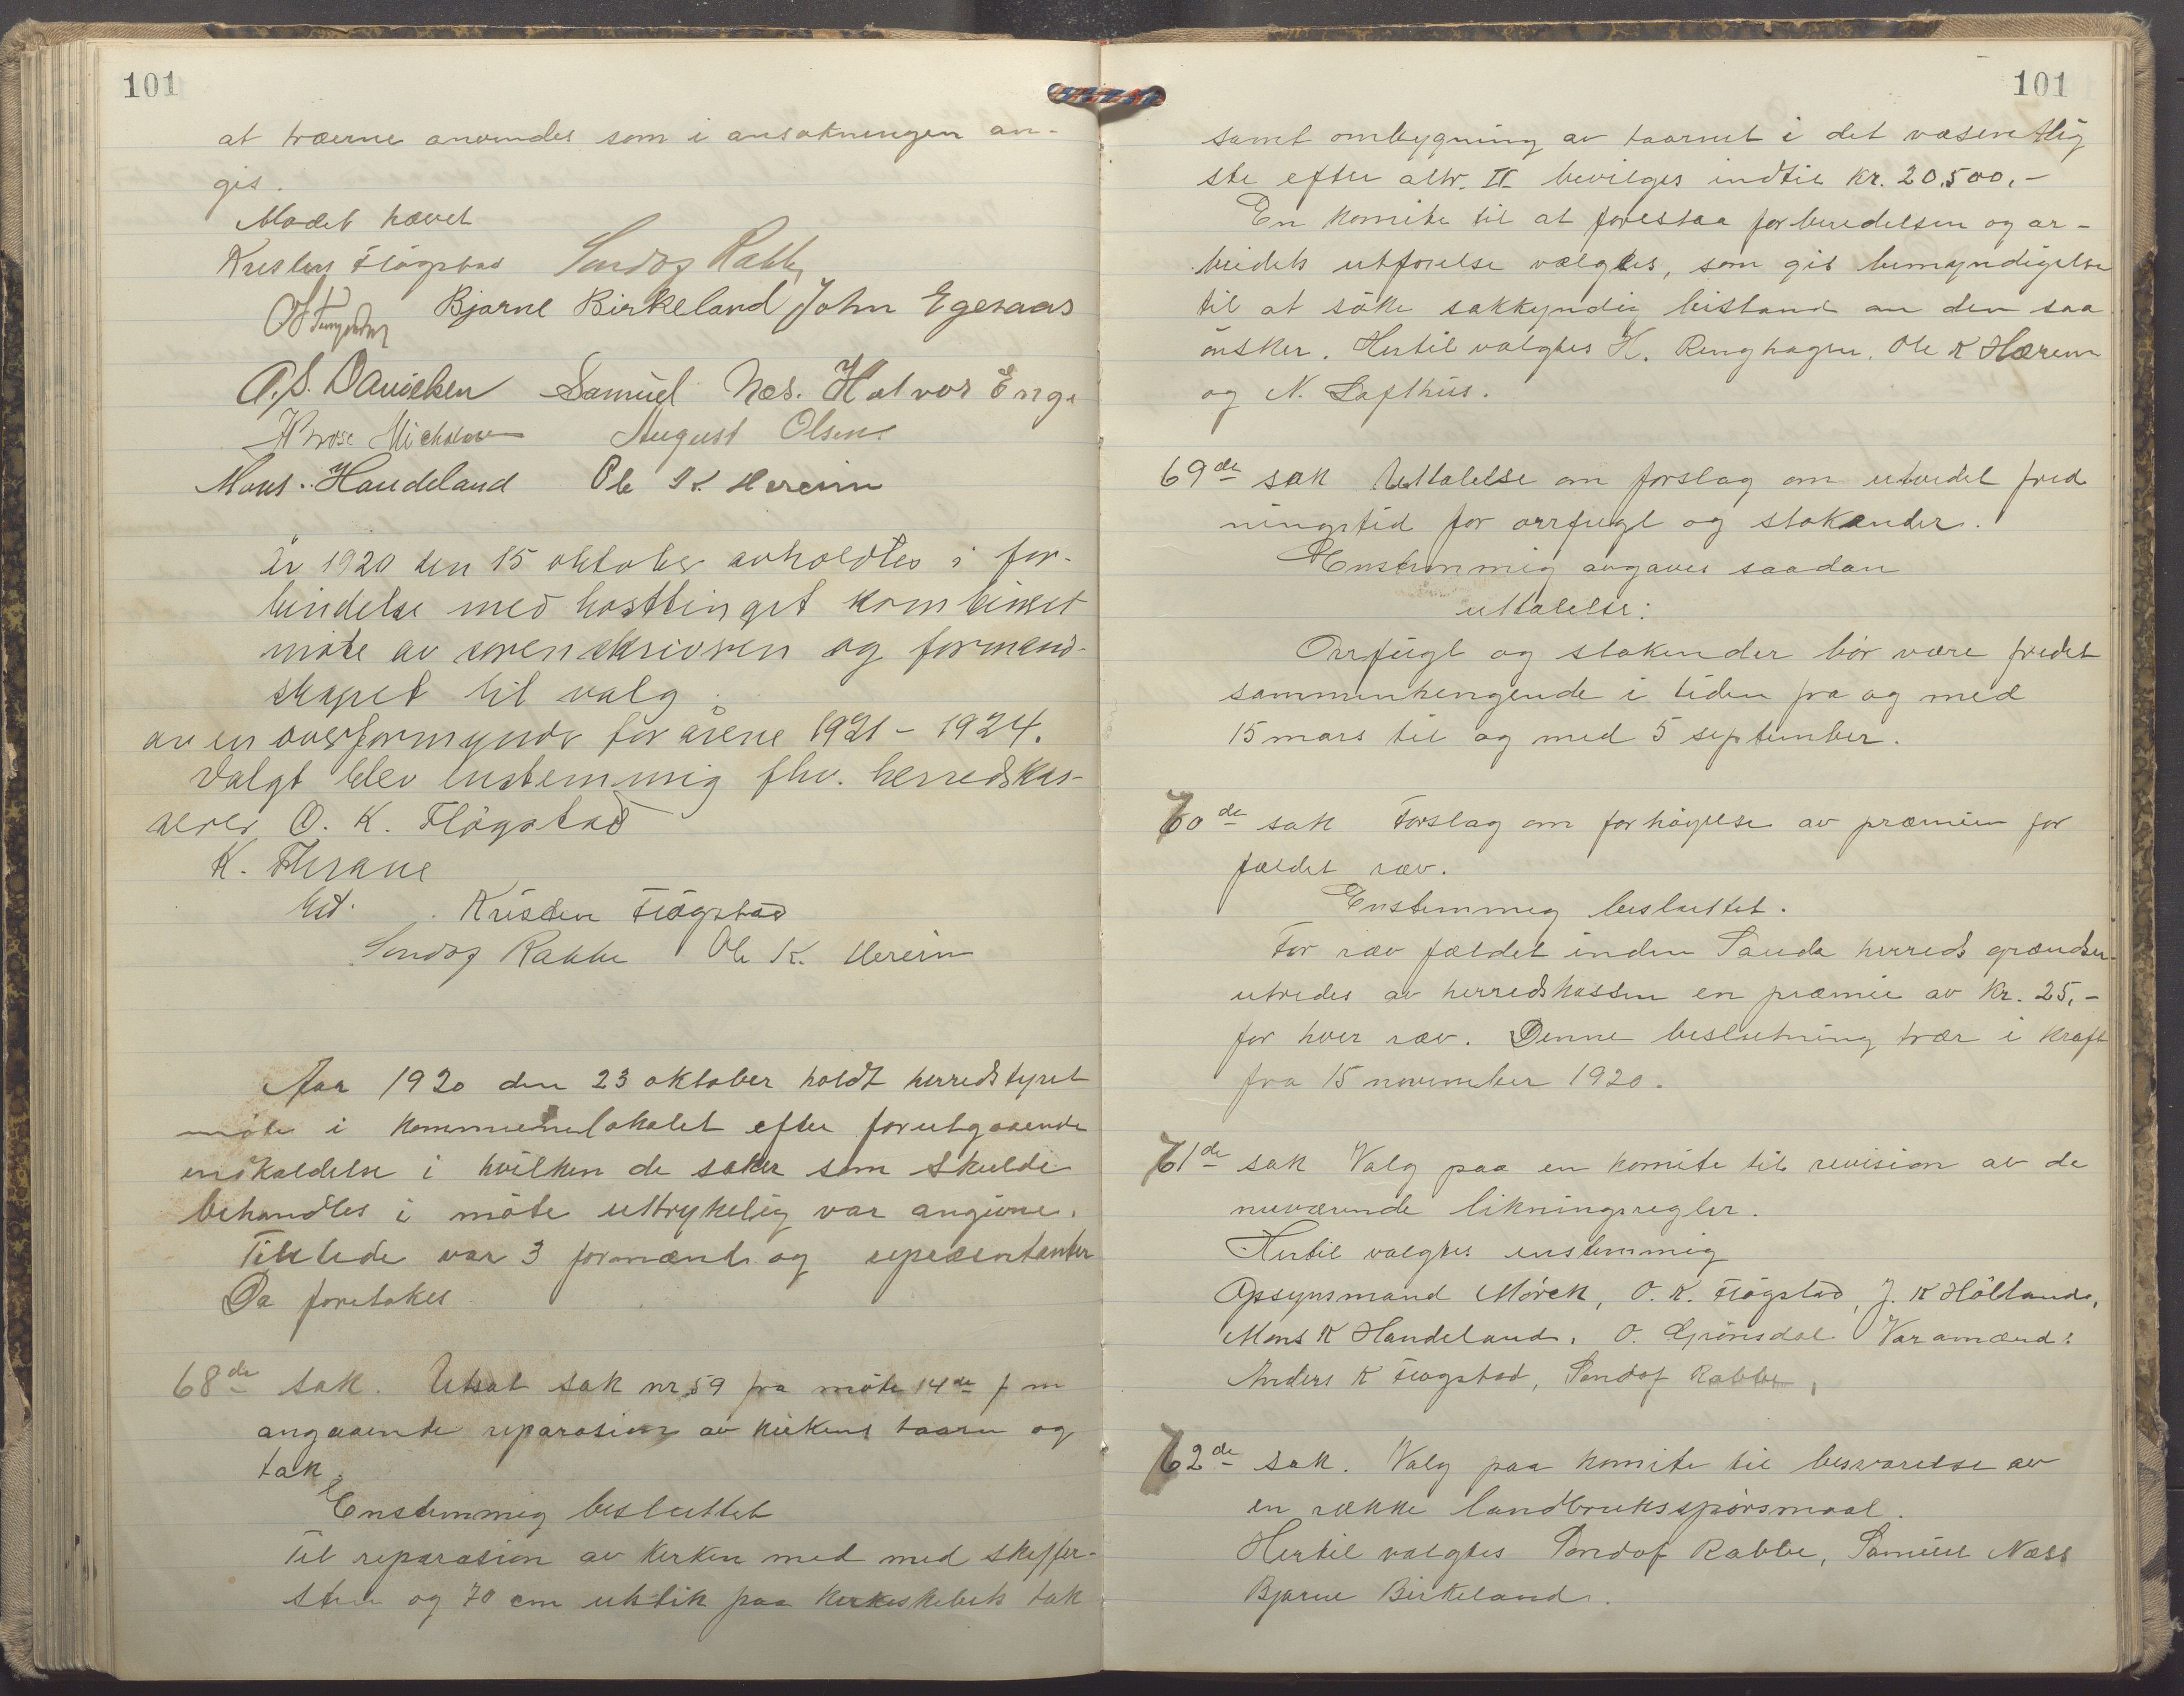 101
at træerne anvendes som i ansøkningen an-
gis.
Mødet hævet
Kristen Fløgstad Sondof Rabbe
Bjarne Birkeland John Egeraas
O. S. Danielsen Samuel Næs. Halvor Enge
August Olsen
Mons. Handeland Ole K. Hereim
År 1920 den 15 oktober avholdtes i for-
bindelse med høsttinget kombinert
møte av sorenskriveren og formand-
skapet til valg
av en overformynder for årene 1921 - 1924.
Valgt blev enstemmig fhv. herredskas-
serer O. K. Fløgstad
K. Thrane
Kristen Fløgstad
Sondof Rabbe Ole K. Hereim
Aar 1920 den 23 oktober holdt herredstyret
møte i kommunelokalet efter forutgaaende
indkaldelse i hvilken de saker som skulde
behandles i møte uttrykelig var angivne.
Tilstede var 3 formænd og repræsentanter
Da foretokes
68de sak. Utsat sak nr 59 fra møte 14de f m
angaaende reparasion av kirkens taarn og
tak.
Enstemmig besluttet
Til reparasion av kirken med med skiffer-
sten og 70 cm utstik paa kirkeskibets tak
101
samt ombygning av taarnet i det væsentlig
ste efter altr. II bevilges indtil kr. 20.500,-
En komite til at forestaa forberedelsen og ar-
beidets utførelse vælges, som gis bemyndigelse
til at söke sakkyndig bistand om den saa
önsker. Hertil valgtes K. Ringhagen, Ole K Hæreim
og N. Lofthus.
69de sak Uttalelse om forslag om utvidet fred
ningstid for orrfugl og stokænder.
Enstemmig avgaves saadan
uttalelse:
Orrfugl og stokender bör være fredet
sammenhengende i tiden fra og med
15 mars til og med 5 september.
70de sak Forslag om forhöyelse av præmien for
fældet ræv.
Enstemmig besluttet.
For ræv fældet inden Sauda herreds grændser
utredes av herredskassen en præmie av kr. 25,-
for hver ræv. Denne beslutning trær i kraft
fra 15 november 1920.
71de sak Valg paa en komite til revision av de
nuværende likningsregler.
Hertil valgtes enstemmig
Opsynsmand Mörck, O. K. Flögstad, J. K Hölland,
Mons K Handeland, O. Grönsdal Varamænd:
Anders K Flogstad, Sondof Rabbe,
72de sak. Valg paa komite til besvarelse av
en række landbruksspörsmaal.
Hertil valgtes Sondof Rabbe, Samuel Næss
Bjarne Birkeland.